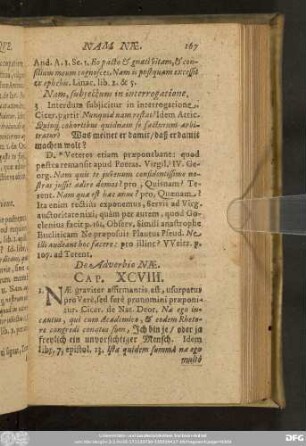 NAM NÆ. 167
And. A. 1. Sc. 1. Eo pacto & gnati vitam, & con-
silium meum cognosces. Nam is postquam excessit
ex ephebis. Linac. lib. 2. & 5.
Nam, subjectum in interrogatione,
3 Interdum subjicitur in interrogatione,
Cicer. partit Nunquid nam restat? Idem Attic.
cohortibus quidnam se facturum arbi-
tratur? Was meinet er damit / daß er damit
machen wolt?
D. Veteres etiam præponebant: quod
pestea remansit apud Poetas. Virgil. IV. Ge-
org. Nam quis te juvenum confidentissime no-
stras jussit adire domos? pro, Quisnam? Te-
rent. Nam quæ est hæc anus? pro, Quænam?
Ita enim rectius exponemus, Servii ad Virg.
auctoritate nixi, quàm per autem, quod Go-
clenius facit p. 161. Observ. Simili anastrophe
Encliticam Ne præposuit Planeta Pseud. Ne-
illi audeant hoc facere: pro illine?
109. ad Terent.
De Adverbio NÆ.
CAP. XCVIII.
1. NÆ graviter affirmantis est, usurpatur
pro Verè, sed ferè pronomini præponi-
tur. Cicer. de Nat. Deor. Næ ego in-
cautus, qui cum Academico, & eodem Rheto-
re congredi conatus sum, Ich bin je / oder ja
freylich ein unvorsichtiger Mensch. Idem
Lib. 7, epistol. 13. Ista quidem summa ne ego
multo